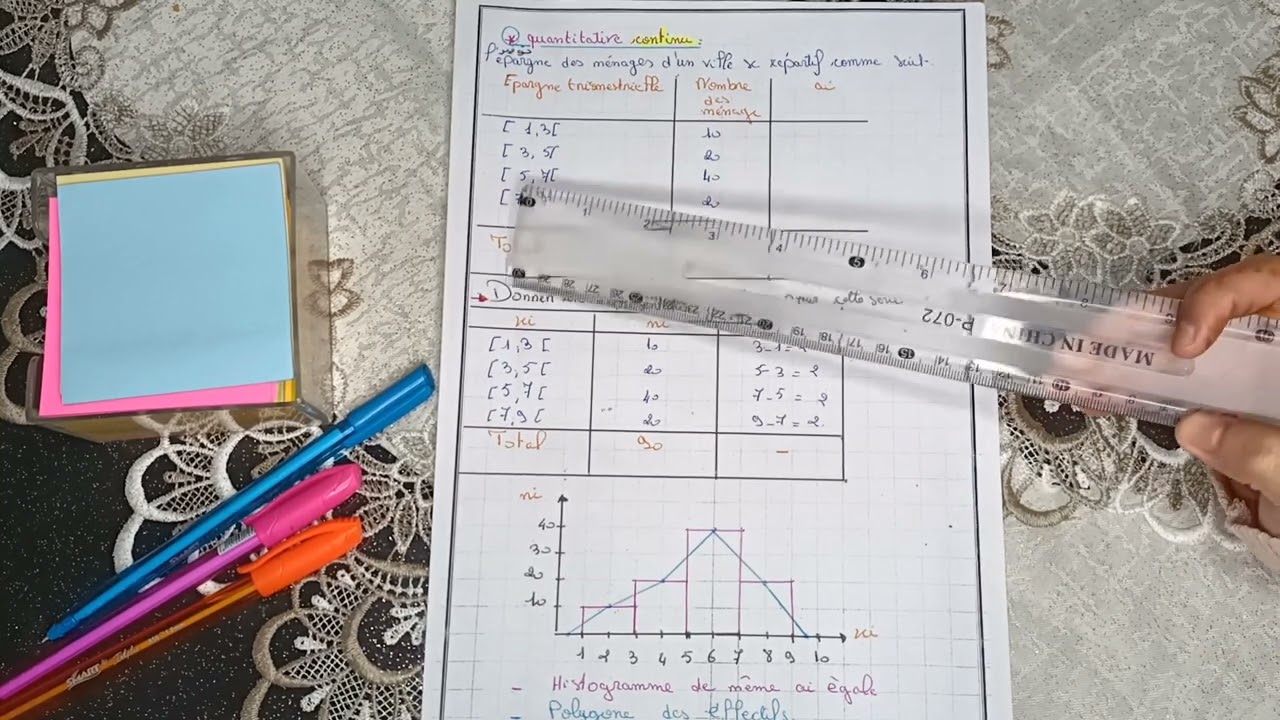 quantitative continu:
l'épargne des ménages d'un ville se répartif comme suit.
Epargne trismestrielle Nombre des ménage ai
[ 1,3[ 10
[ 3, 5[ 20
[ 5, 7[ 40
[ 20
To
Donnen cette serie
xi ni
[1,3 [ 10 3-1=
[3,5[ 20 5-3 = 2
[5,7[ 40 7-5 = 2
[7,9[ 20 9-7=2.
Total 90 -
ni
40
30
20
10
1 2 3 4 5 6 7 8 9 10 xi
- Histogramme de même ai ègale
- Polygone des Effectifs.
P-072
MADE IN CHIN
SMART